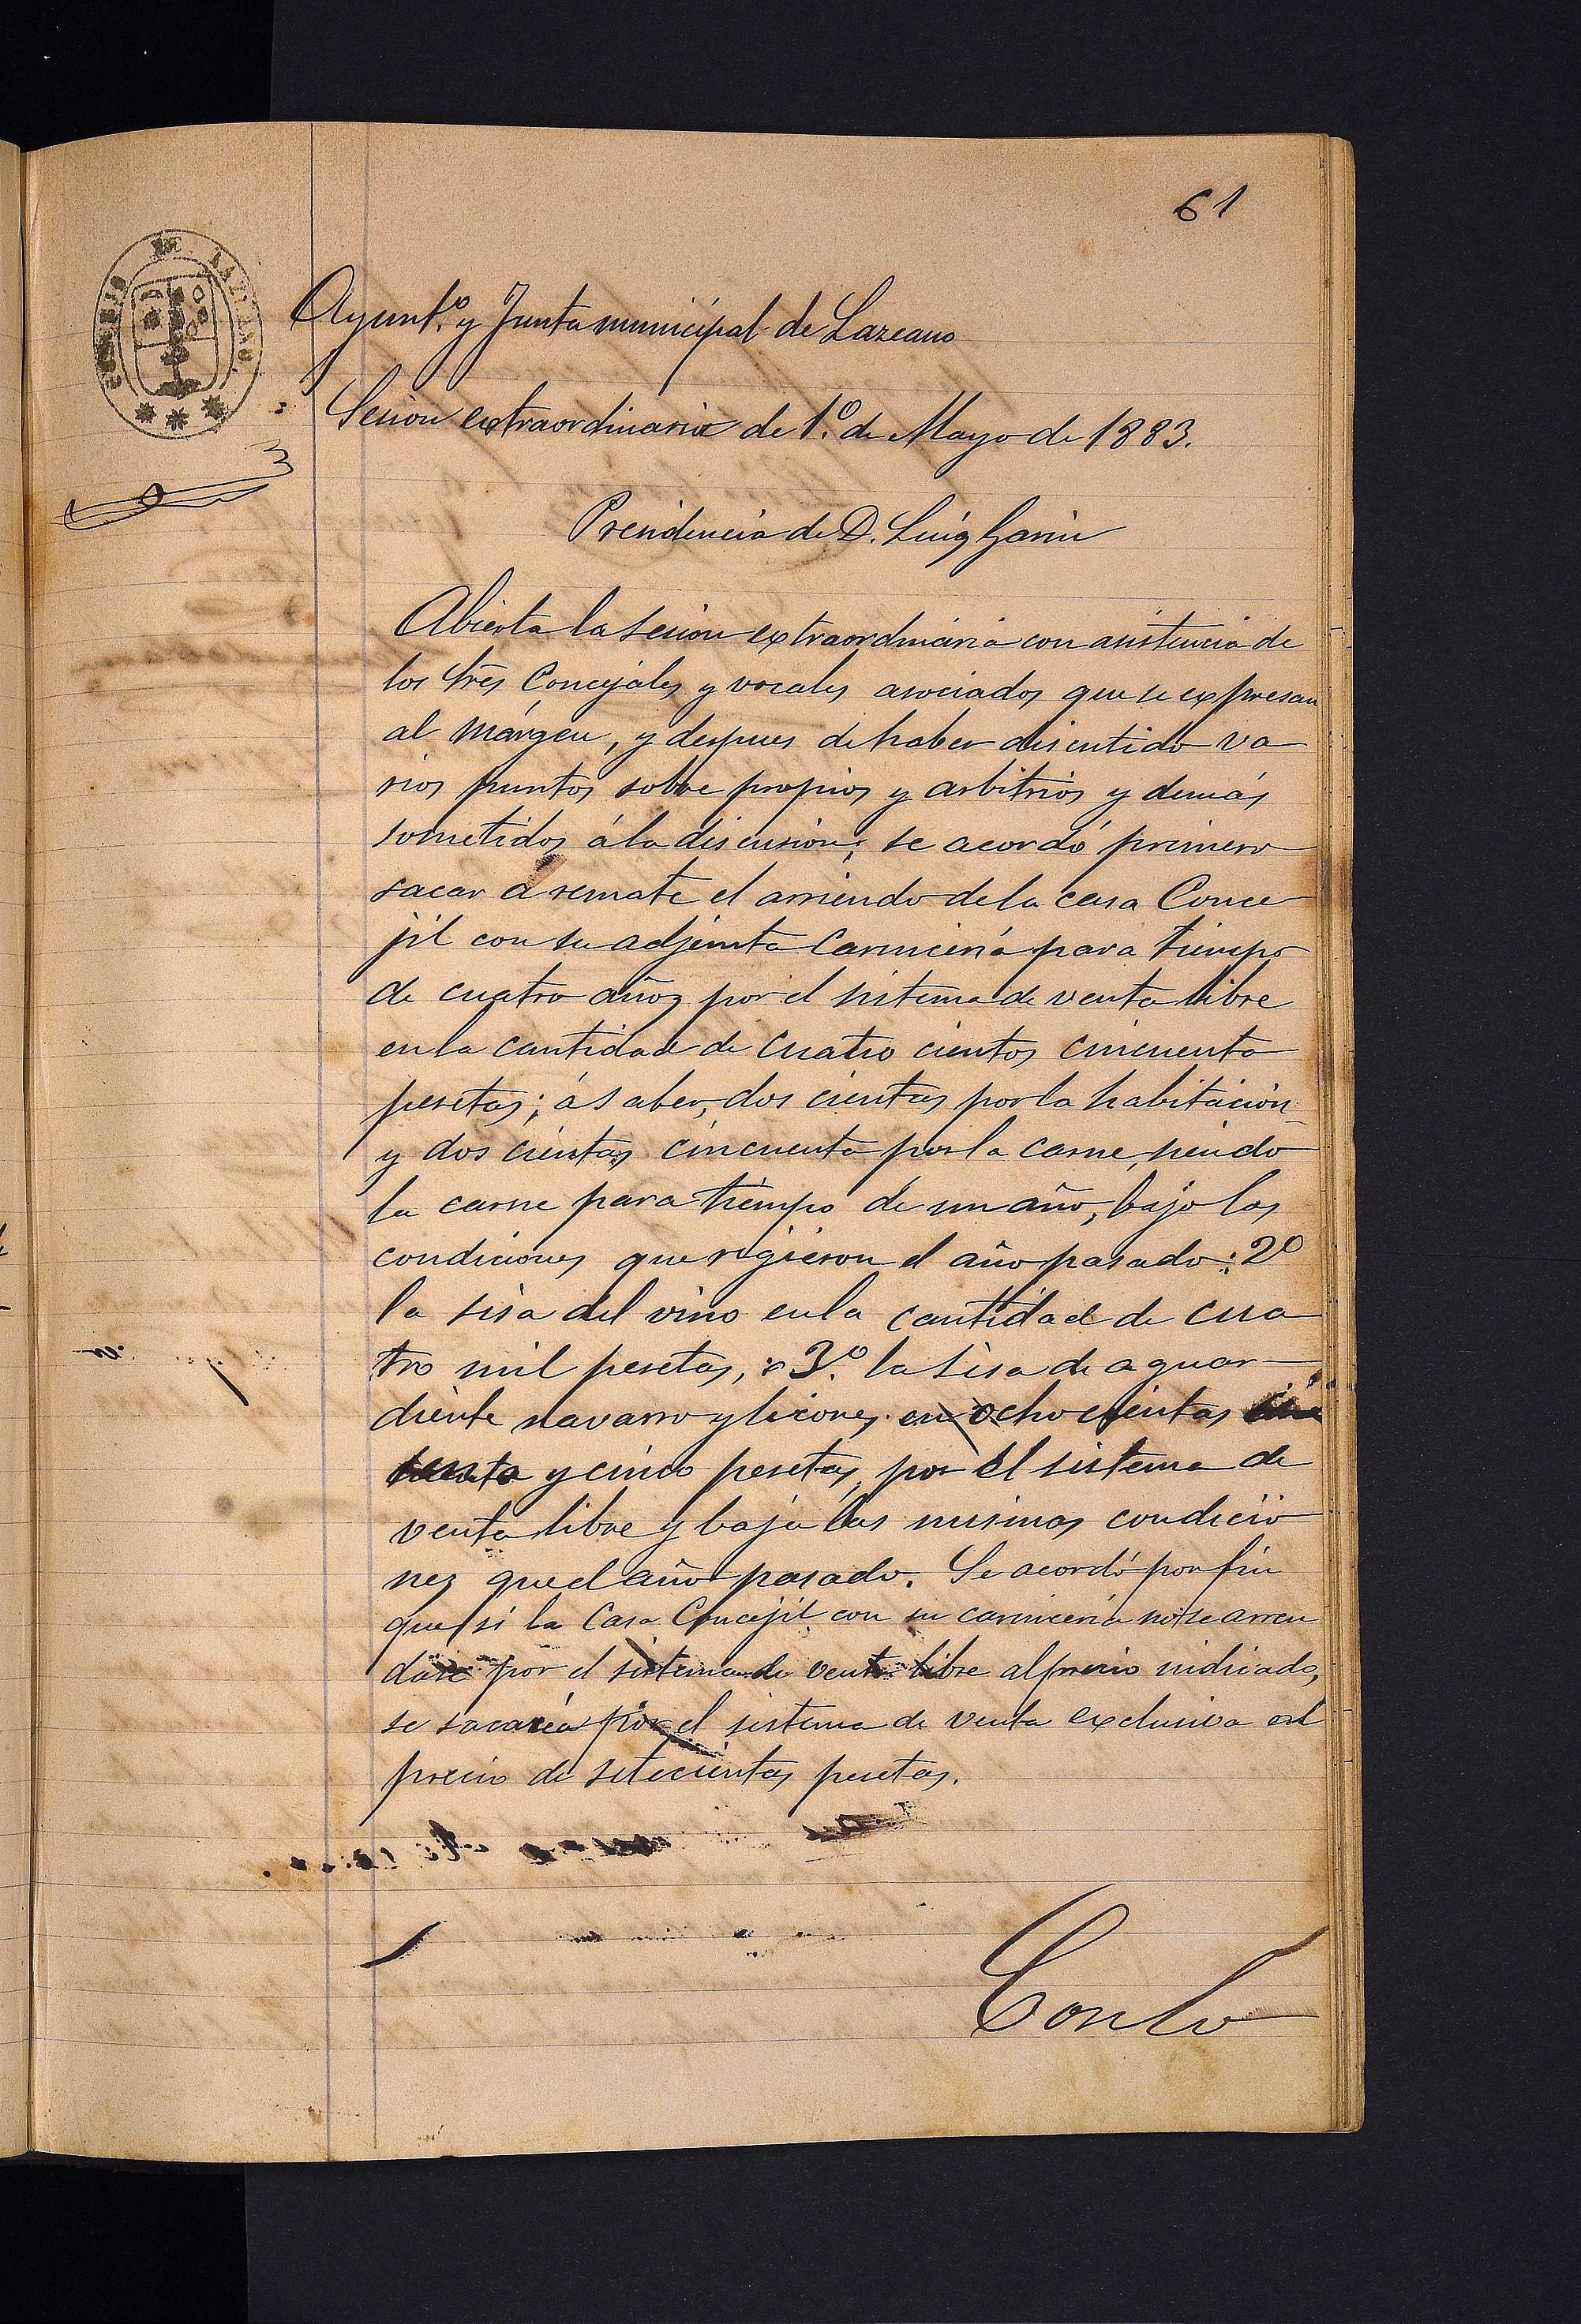 61
CONCEJO DE LAZCANO
Ayunt.º y Junta municipal de Lazcano
Sesion extraordinaria de 1.º de Mayo de 1883.
Presidencia de D. Luis Garin
Abierta la sesion extraordinaria con asistencia de
los Sres Concejales y vocales asociados que se expresan
al márgen, y despues de haber discutido va
rios puntos sobre propios y arbitrios y demás
sometidos á la discusion; se acordó primero
sacar á remate el arriendo de la casa Conce
jil con su adjunta Carnicería para tiempo
de cuatro años por el sistema de venta libre
en la cantidad de cuatro cientos cincuenta
pesetas; á saber, dos cientas por la habitacion
y dos cientas cincuenta por la carne, siendo
la carne para tiempo de un año, bajo las
condiciones que rigieron el año pasado: 2º
la sisa del vino en la cantidad de cua
tro mil pesetas, 3.º la sisa de aguar-
diente navarro y licores en ocho cientas
y cinco pesetas, por el sistema de
venta libre y bajo las mismas condicio
nes que el año pasado. Se acordó por fin
que si la Casa Concejil con su carnicería no se arren
dase por el sistema de venta libre al precio indicado,
se sacaría por el sistema de venta exclusiva al
precio de setecientas pesetas.
Con lo